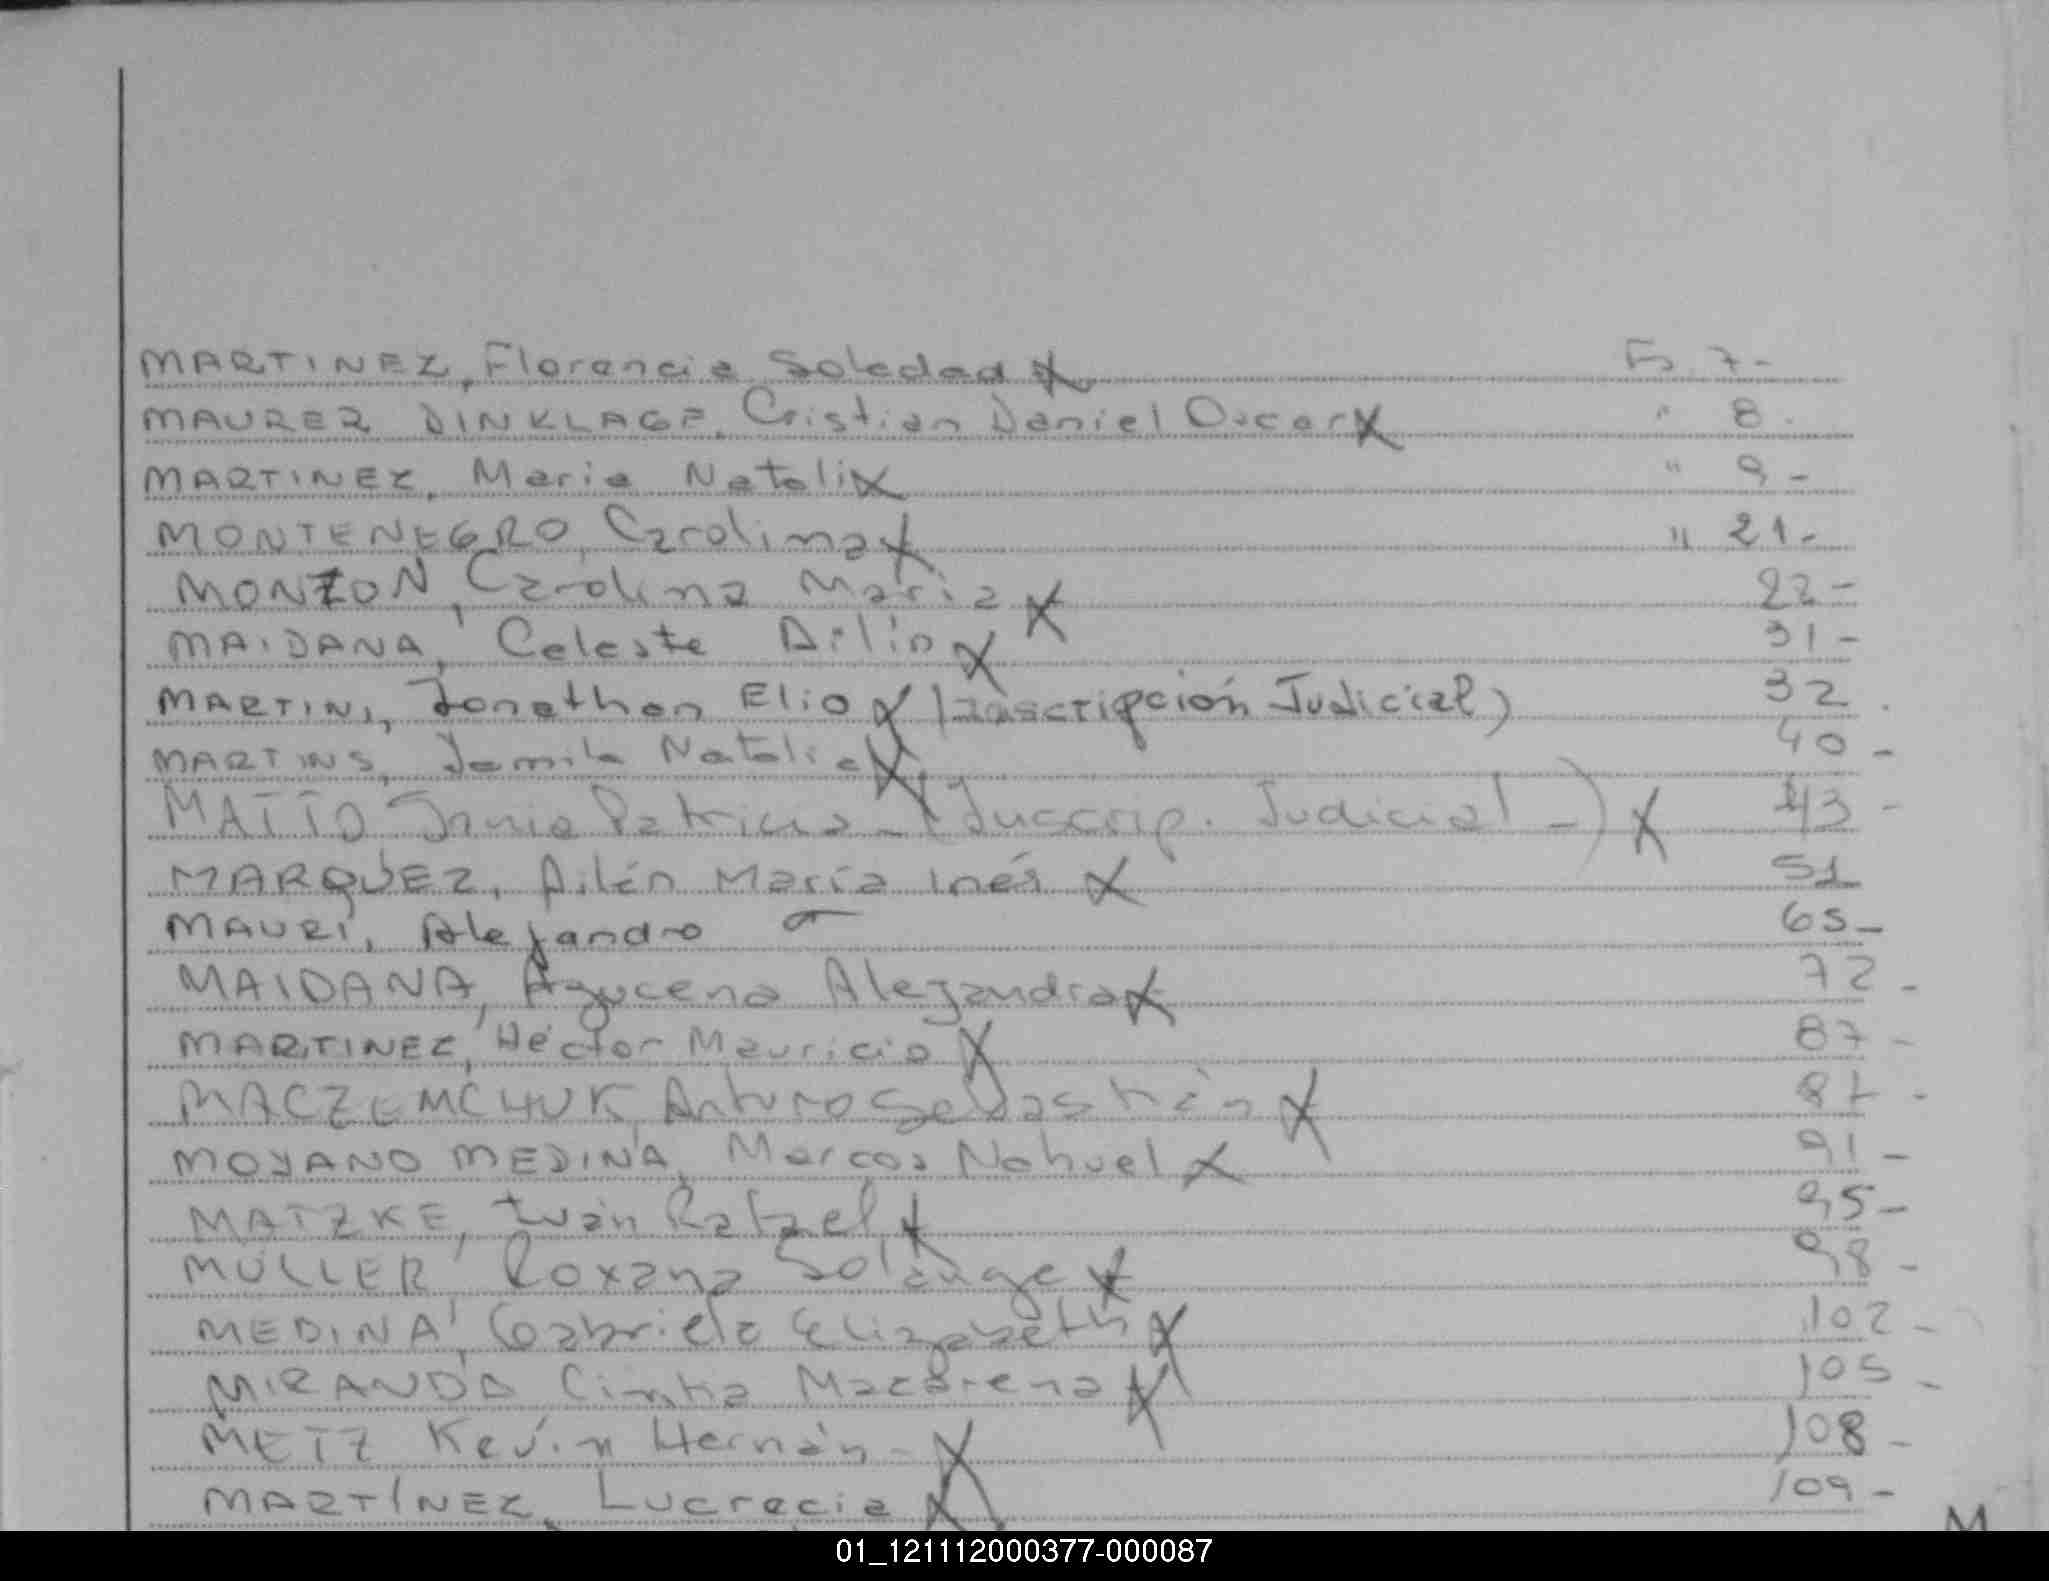 MARTINEZ, Florencia Soledad X Fs. 7-
MAURER DINKLAGE, Cristian Daniel Oscar X " 8-
MARTINEZ, Maria Natali X " 9-
MONTENEGRO, Carolina X " 21-
MONZON, Carolina Maria X 22-
MAIDANA, Celeste Ailin X 31-
MARTINI, Jonathan Elio X (Inscripción Judicial) 32.
MARTINS, Jamila Natalia X 40-
MATTO Patricia - (Inscrip. Judicial -) X 43-
MARQUEZ, Ailén María Inés X 51
MAURI, Alejandro 65-
MAIDANA, Azucena Alejandra X 72-
MARTINEZ, Héctor Mauricio X 87-
MACZEMCHUK Arturo Sebastián X 87-
MOYANO MEDINA, Marcos Nahuel X 91-
MATZKE, Iván Rafael X 95-
MÜLLER, Roxana Solange X 98-
MEDINA, Gabriela Elizabeth X 102-
MIRANDA Cintia Macarena X 105-
METZ Kevin Hernán - X 108-
MARTÍNEZ, Lucrecia X 109-
M
01_121112000377-000087